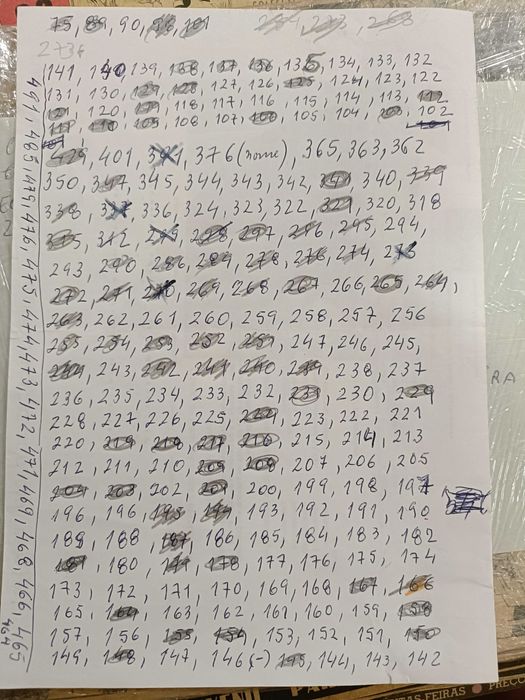 75, 89, 90, 98, 101
273x
141, 140, 139, 138, 137, 136, 135, 134, 133, 132
131, 130, 129, 128, 127, 126, 125, 124, 123, 122
121, 120, 119, 118, 117, 116, 115, 114, 113, 112
109, 108, 107, 106, 105, 104, 103, 102
401, 376 (nome), 365, 363, 362
350, 347, 345, 344, 343, 342, 341, 340, 339
338, 336, 324, 323, 322, 321, 320, 318
315, 312, 299, 298, 297, 296, 295, 294,
293, 290, 286, 284, 278, 276, 274, 273
272, 271, 270, 269, 268, 267, 266, 265, 264,
263, 262, 261, 260, 259, 258, 257, 256
255, 254, 253, 252, 251, 247, 246, 245,
244, 243, 242, 241, 240, 239, 238, 237
236, 235, 234, 233, 232, 231, 230, 229
228, 227, 226, 225, 224, 223, 222, 221
220, 219, 218, 217, 216, 215, 214, 213
212, 211, 210, 209, 208, 207, 206, 205
204, 203, 202, 201, 200, 199, 198, 197
196, 196, 195, 194, 193, 192, 191, 190
188, 188, 187, 186, 185, 184, 183, 182
181, 180, 179, 178, 177, 176, 175, 174
173, 172, 171, 170, 169, 168, 167, 166
165, 164, 163, 162, 161, 160, 159, 158
157, 156, 155, 154, 153, 152, 151, 150
149, 148, 147, 146 (-) 145, 144, 143, 142
491, 485, 479, 476, 475, 474, 473, 472, 471, 469, 468, 466, 465
464
RA